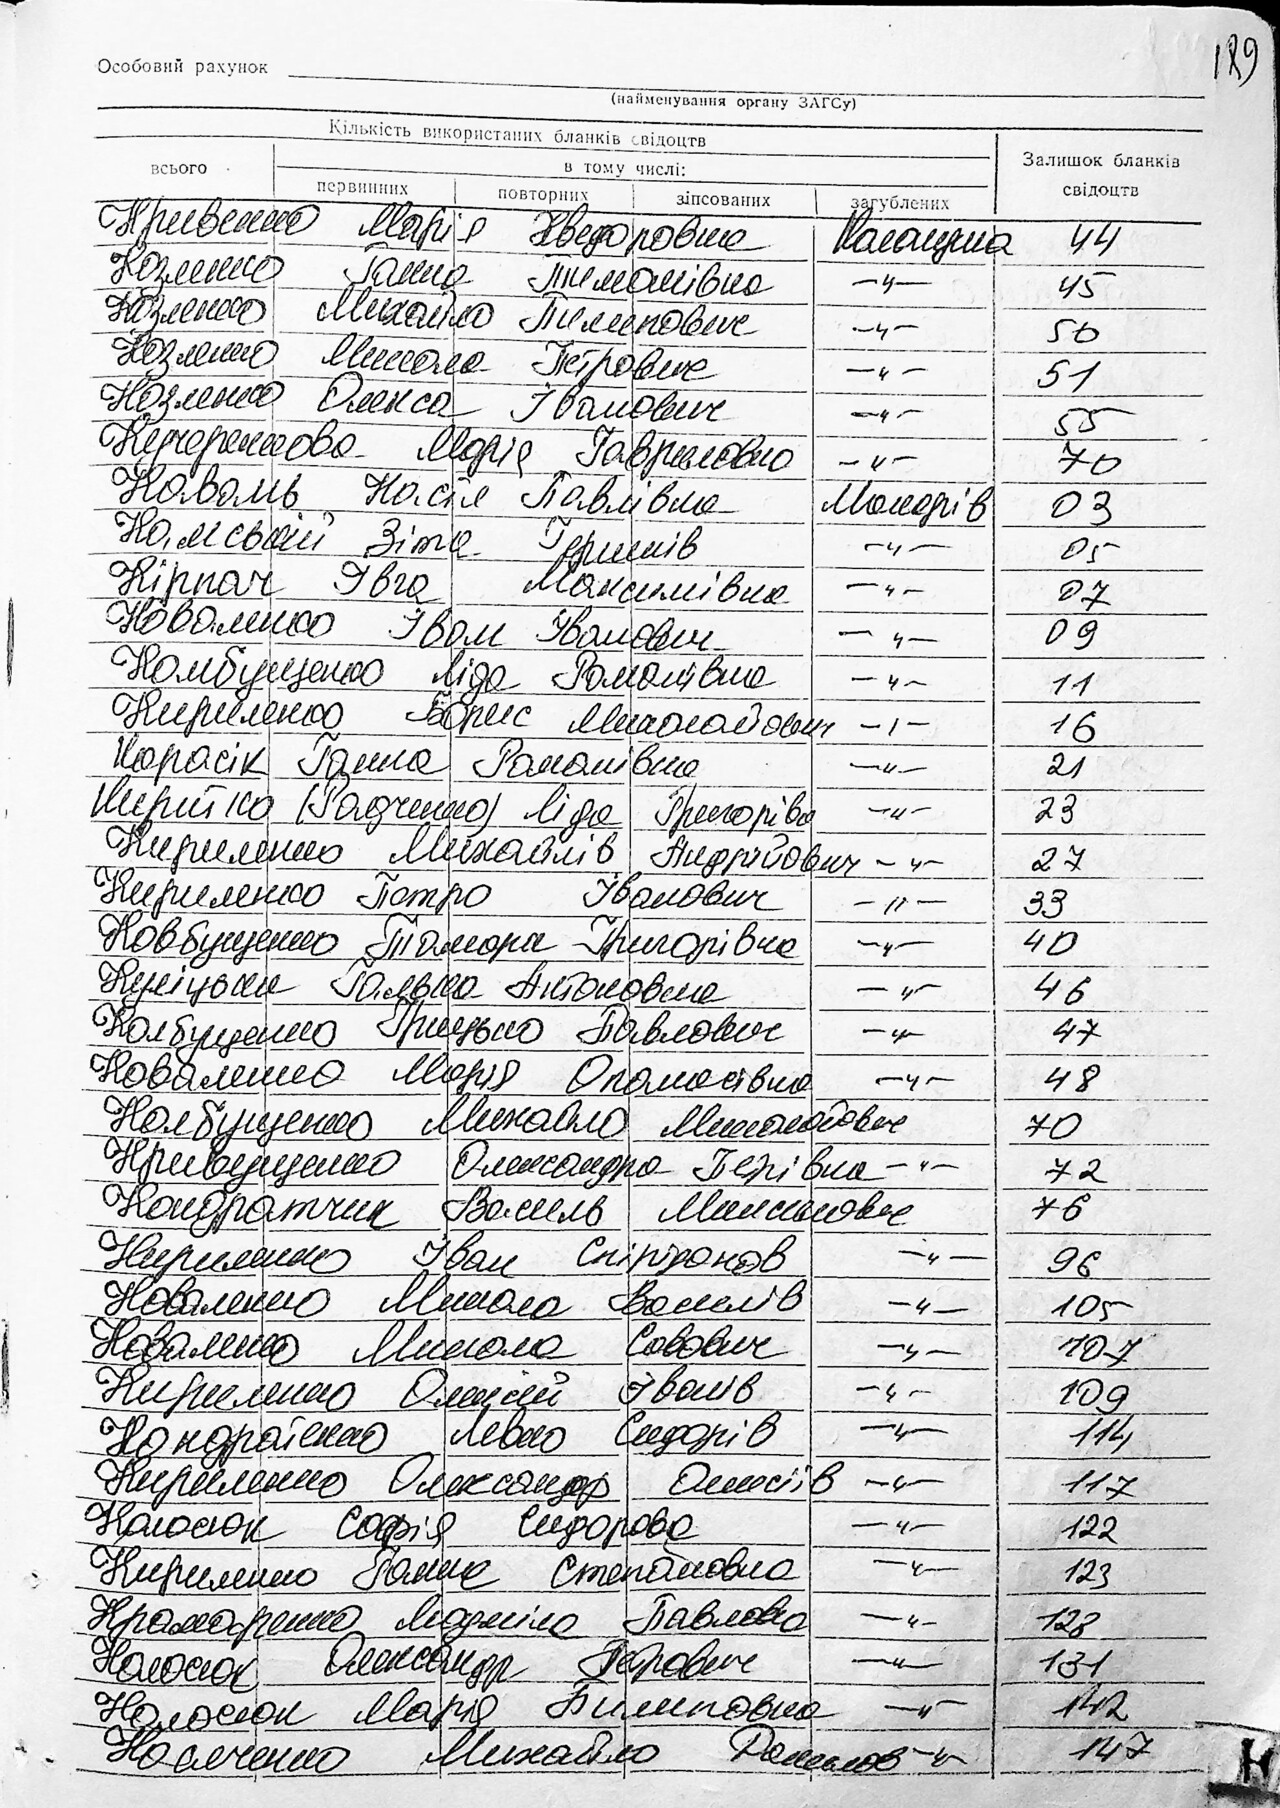 189
Особовий рахунок
(найменування органу ЗАГСу)
Кількість використаних бланків свідоцтв
всього
в тому числі:
Залишок бланків свідоцтв
первинних повторних зіпсованих загублених
Кривенко Марія Хведоровна 44
Козленко Ганна Тимошівна —"— 45
Козленко Михайло Пилипович —"— 50
Козленко Микола Петрович —"— 51
Козленко Олекса Іванович —"— 55
Марія Гавриловна —"— 70
Коваль Настя Павлівна Макарів 03
Зіна —"— 05
Кірпач Івга Максимівна —"— 07
Коваленко Іван Іванович —"— 09
Ковбущенко Ліда Романівна —"— 11
Кириленко Борис Миколайович —"— 16
Карасік Ганна Романівна —"— 21
(Радченко) Ліда Григорівна —"— 23
Кириленко Михайлів Андрійович —"— 27
Кириленко Петро Іванович —"— 33
Ковбущенко Тамара Григорівна —"— 40
Антоновна —"— 46
Ковбущенко Грицько Павлович —"— 47
Коваленко Марія Опанасівна —"— 48
Ковбущенко Михайло Миколайович 70
Кривущенко Олександра Петрівна —"— 72
Кондратчик Василь Максимович 76
Кириленко Іван Спірідонов —"— 96
Коваленко Микола Василів —"— 105
Коваленко Микола Савович —"— 107
Кириленко Олексій Іванів —"— 109
Кондратенко Левко Сидорів —"— 114
Кириленко Олександр Олексіїв —"— 117
Колосюк Софія Сидорова —"— 122
Кириленко Ганна Степановна —"— 123
Крамаренко Людміла Павловна —"— 128
Колосюк Олександр Петрович —"— 131
Колосюк Марія Пилиповна —"— 142
Касяченко Михайло Романов —"— 147